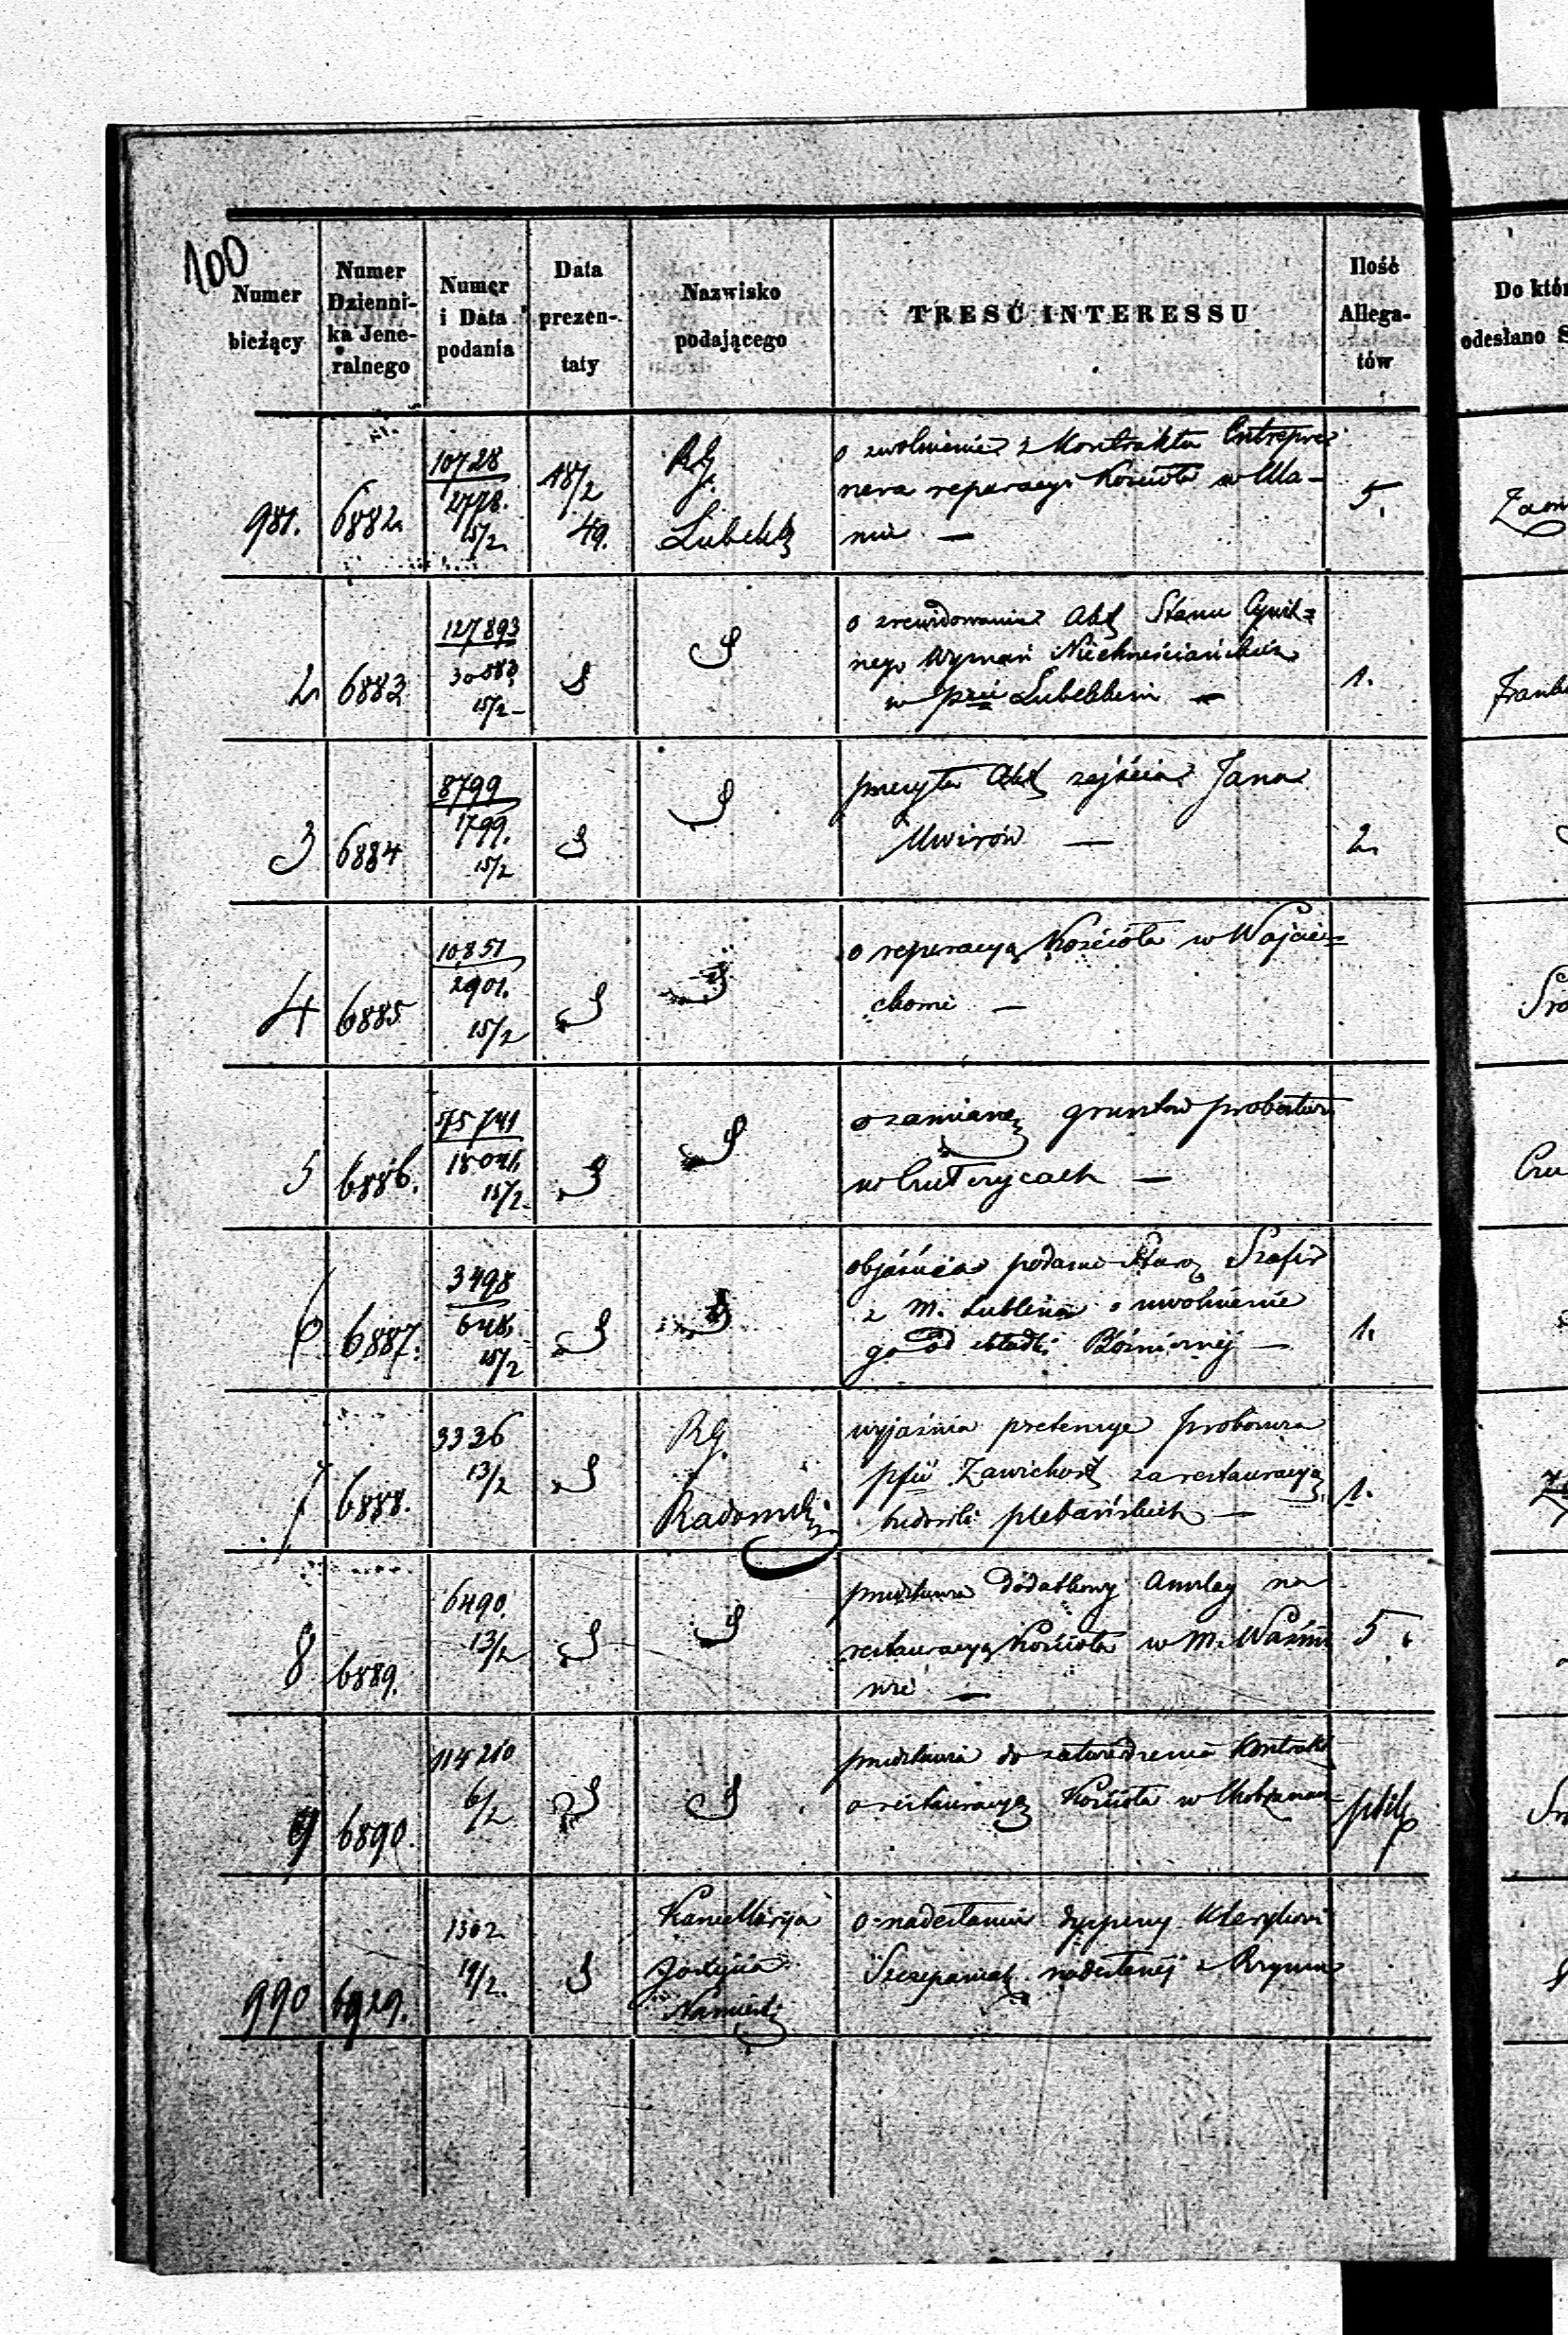 100
Numer bieżący
Numer Dzienni-ka Jene-ralnego
Numer i Data podania
Data prezen-taty
Nazwisko podającego
TREŚĆ INTERESSU
Ilość Allega-tów
Do któr
odesłano S
981. 6882. 10728 18/2 RG.
2778. 49. Lubelski
15/2
o uwolnienie z Kontraktu Entrepre-
nera reperacyi Kościoła w
5.
Zam
2 6883 127893
30583
15/2
o zrewidowanie Akt Stanu Cywil=
nego Wyznań Niechrześciańskich
w Lubelskiem —
1.
Frank
3 6884 8799
1799.
15/2
Akt zejścia Jana
—
2.
4 6885 10851
2901.
15/2
o reperacyą Kościoła w Wojcie=
chowie —
Sro
5 6886. 75741
15/2
o zamianę gruntów
w —
6 6887. 3498
648.
15/2
objaśnia podanie Szafir
z M. Lublina o uwolnienie
go od składki Bóżnicznej —
1.
7 6888. 3336 RG.
13/2
Radomski
wyjaśnia pretensye Proboszcza
Zawichost za restauracyą
plebańskich —
1.
8 6889. 6490.
13/2
przedstawia dodatkowy Anszlag na
restauracyą Kościoła w M. Waśni
wie —
5.
9 6890. 114210
6/2
przedstawia do zatwierdzenia Kontrakt
o restauracyą Kościoła w
990 6929. 1302 Kancellarija
19/2. Jaśnie
Namiest
o nadesłaniu dyspensy Klerykowi
Szczepaniak nadesłanej z Rzymu